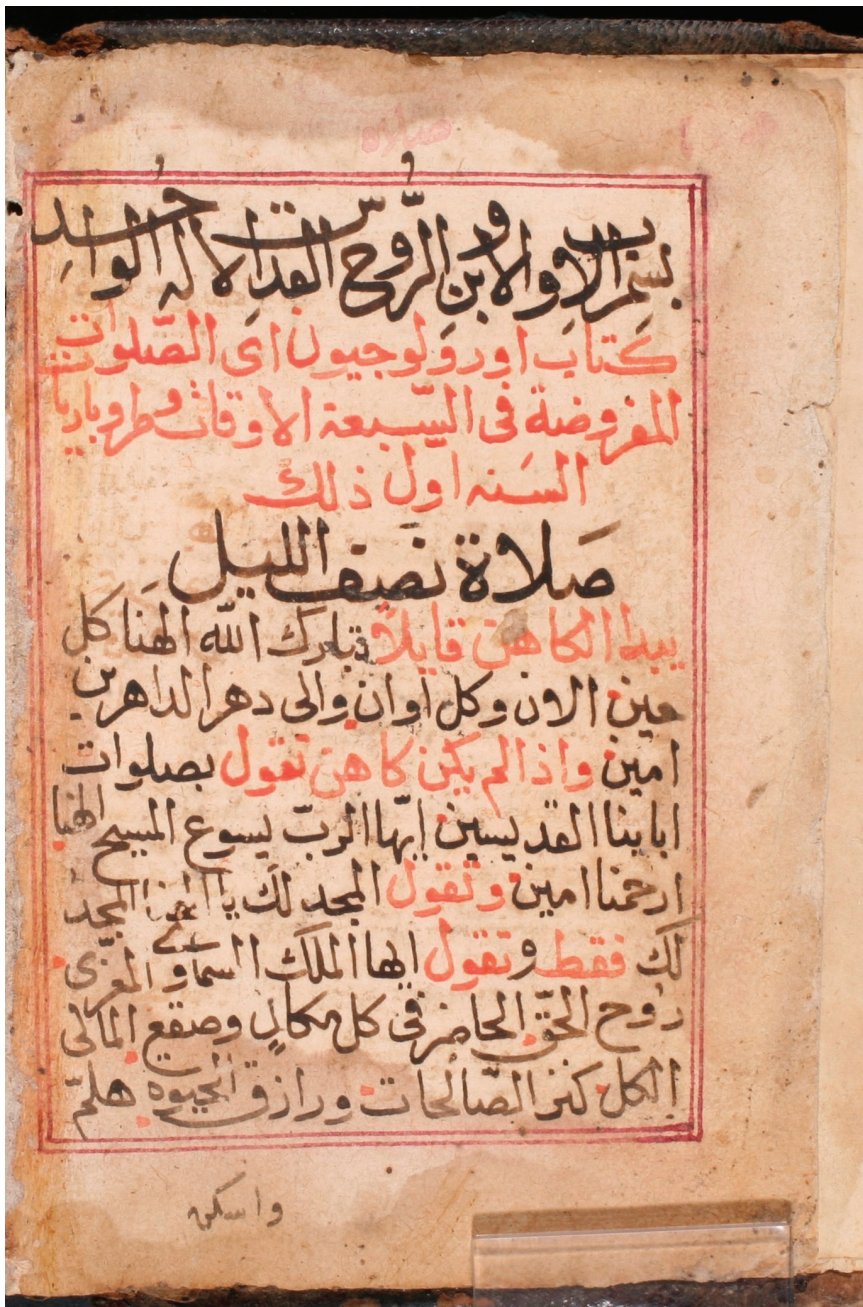 صلاة
بسم الاب والابن والرُّوح القدس الاله الواحد
كتاب اورولوجيون اى الصّلوات
المفروضة فى السّبعة الاوقات وطروباريات
السَنه اول ذلك
صَلاة نصف الليل
يبدا الكاهن قايلاً تبارك الله الهنا كل
حين الان وكل اوان والى دهر الداهرين
امين واذا لم يكن كاهن تقول بصلوات
اباينا القديسين ايّها الربّ يسوع المسيح الهنا
ارحمنا امين وتقول المجد لك يا الهنا المجد
لك فقط وتقول ايها الملك السماوى المعزّى
روح الحقّ الحاضر فى كل مكانٍ وصقع المالى
الكل كنز الصّالحات ورازق الحيوه هلمّ
واسكن